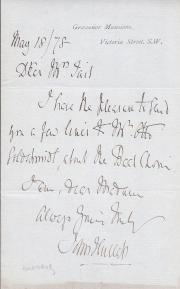 Grosvenor Mansions,
Victoria Street, S.W.
May 18/78
Dear Mrs Tait
I have the pleasure to send
you a few lines to Mr. Otto
Goldschmidt, about the Bach Choir
I am, dear Madam
Always Yours truly
John Hullah